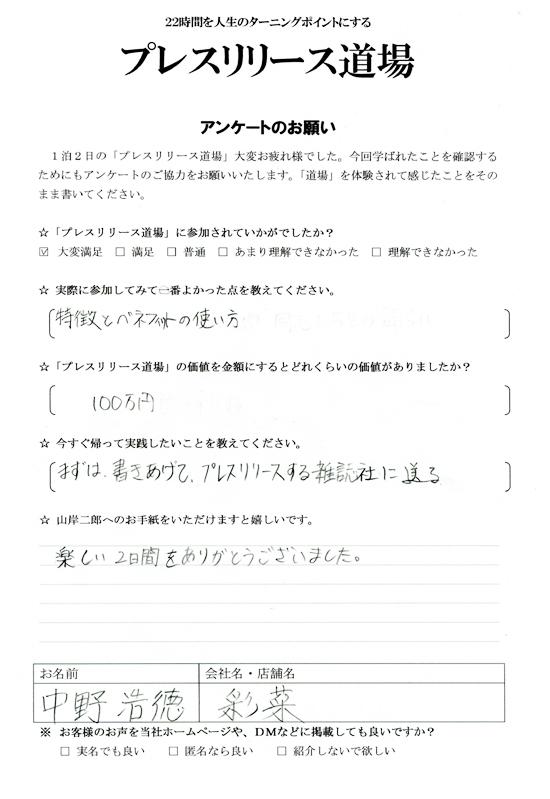 22時間を人生のターニングポイントにする
プレスリリース道場
アンケートのお願い
1泊2日の「プレスリリース道場」大変お疲れ様でした。今回学ばれたことを確認する
ためにもアンケートのご協力をお願いいたします。「道場」を体験されて感じたことをその
まま書いてください。
☆「プレスリリース道場」に参加されていかがでしたか？
☑ 大変満足 □ 満足 □ 普通 □ あまり理解できなかった □ 理解できなかった
☆ 実際に参加してみて一番よかった点を教えてください。
特徴とベネフィットの使い方
☆「プレスリリース道場」の価値を金額にするとどれくらいの価値がありましたか？
100万円
☆ 今すぐ帰って実践したいことを教えてください。
まずは、書きあげて、プレスリリースする雑誌社に送る
☆ 山岸二郎へのお手紙をいただけますと嬉しいです。
楽しい2日間をありがとうございました。
お名前 会社名・店舗名
中野 浩徳 彩菜
※ お客様のお声を当社ホームページや、DMなどに掲載しても良いですか？
□ 実名でも良い □ 匿名なら良い □ 紹介しないで欲しい